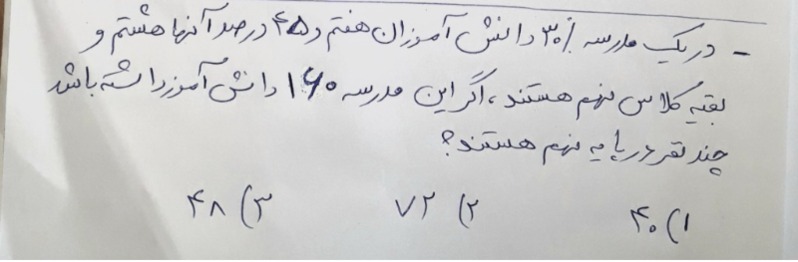 - در یک مدرسه ۳۰٪ دانش آموزان هفتم و ۴۵ درصد آنها هشتم و
بقیه کلاس نهم هستند، اگر این مدرسه ۱۶۰ دانش آموز داشته باشد
چند نفر در پایه نهم هستند؟
۱) ۴۰ ۲) ۷۲ ۳) ۴۸